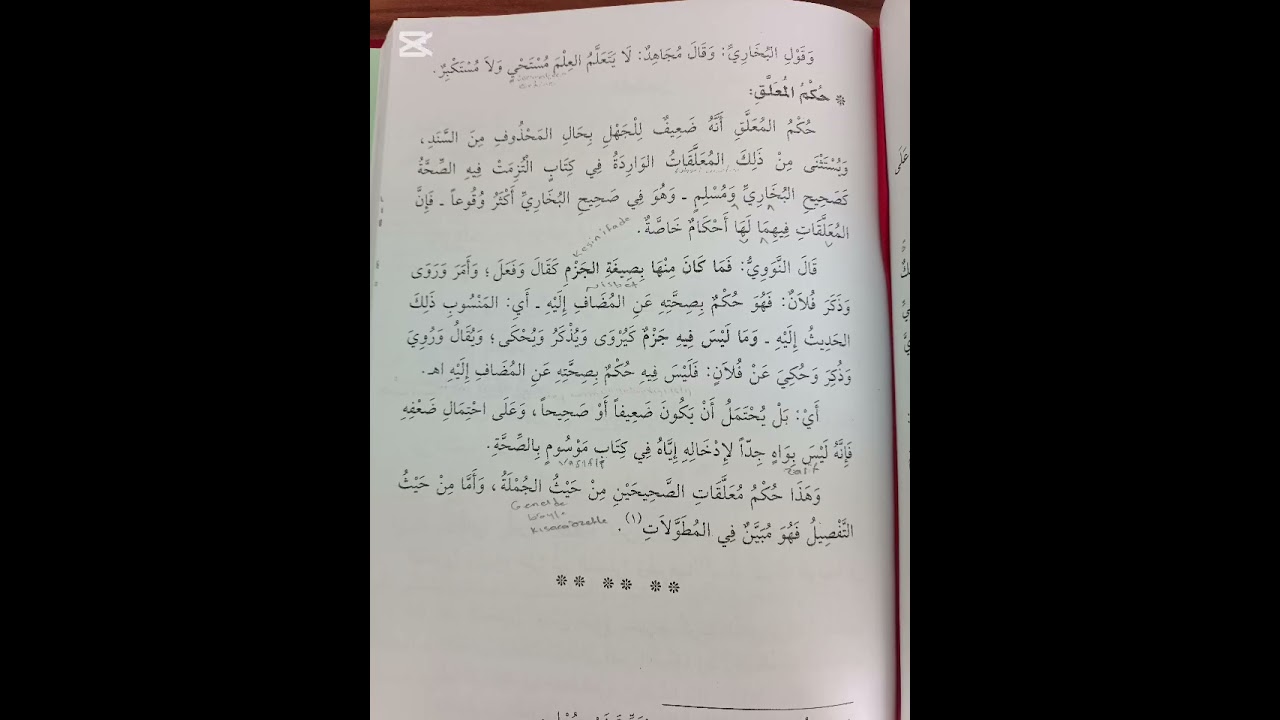 وَقَوْلِ البُخَارِيِّ: وَقَالَ مُجَاهِدٌ: لَا يَتَعَلَّمُ العِلْمَ مُسْتَحْيٍ وَلَا مُسْتَكْبِرٌ.
* حُكْمُ المُعَلَّقِ:
حُكْمُ المُعَلَّقِ أَنَّهُ ضَعِيفٌ لِلْجَهْلِ بِحَالِ المَحْذُوفِ مِنَ السَّنَدِ،
وَيُسْتَثْنَى مِنْ ذَلِكَ المُعَلَّقَاتُ الوَارِدَةُ فِي كِتَابٍ الْتُزِمَتْ فِيهِ الصِّحَّةُ
كَصَحِيحِ البُخَارِيِّ وَمُسْلِمٍ ـ وَهُوَ فِي صَحِيحِ البُخَارِيِّ أَكْثَرُ وُقُوعاً ـ فَإِنَّ
المُعَلَّقَاتِ فِيهِمَا لَهَا أَحْكَامٌ خَاصَّةٌ.
Kesin ifade
قَالَ النَّوَوِيُّ: فَمَا كَانَ مِنْهَا بِصِيغَةِ الجَزْمِ كَقَالَ وَفَعَلَ؛ وَأَمَرَ وَرَوَى
وَذَكَرَ فُلَانٌ: فَهُوَ حُكْمٌ بِصِحَّتِهِ عَنِ المُضَافِ إِلَيْهِ ـ أَيِ: المَنْسُوبِ ذَلِكَ
الحَدِيثُ إِلَيْهِ ـ وَمَا لَيْسَ فِيهِ جَزْمٌ كَيُرْوَى وَيُذْكَرُ وَيُحْكَى؛ وَيُقَالُ وَرُوِيَ
وَذُكِرَ وَحُكِيَ عَنْ فُلَانٍ: فَلَيْسَ فِيهِ حُكْمٌ بِصِحَّتِهِ عَنِ المُضَافِ إِلَيْهِ اهـ.
أَيْ: بَلْ يُحْتَمَلُ أَنْ يَكُونَ ضَعِيفاً أَوْ صَحِيحاً، وَعَلَى احْتِمَالِ ضَعْفِهِ
فَإِنَّهُ لَيْسَ بِوَاهٍ جِدّاً لِإِدْخَالِهِ إِيَّاهُ فِي كِتَابٍ مَوْسُومٍ بِالصِّحَّةِ.
zayıf
وَهَذَا حُكْمُ مُعَلَّقَاتِ الصَّحِيحَيْنِ مِنْ حَيْثُ الجُمْلَةُ، وَأَمَّا مِنْ حَيْثُ
Genelde
التَّفْصِيلُ فَهُوَ مُبَيَّنٌ فِي المُطَوَّلَاتِ(١).
** ** **